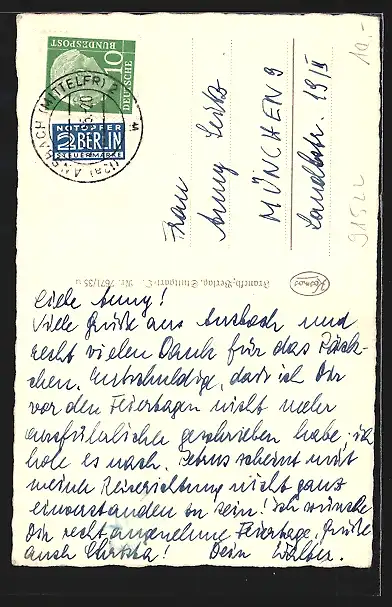 10
DEUTSCHE
BUNDESPOST
NOTOPFER
2 BERLIN
STEUERMARKE
(13a) ANSBACH (MITTELFR) 2
10.-
Frau
Anny
MÜNCHEN 9
19/II
91522
Franckh-Verlag, Stuttgart-O. Nr. 7671/35 u
Kosmos
Liebe Anny!
Viele Grüße aus Ansbach und
recht vielen Dank für das Päck-
chen. Entschuldige, dass ich Dir
vor den Feiertagen nicht mehr
ausführlicher geschrieben habe, ich
hole es nach. Petrus scheint mit
meine Reiserichtung nicht ganz
einverstanden zu sein! Ich wünsche
Dir recht angenehme Feiertage. Grüße
auch Christa! Dein Walter.